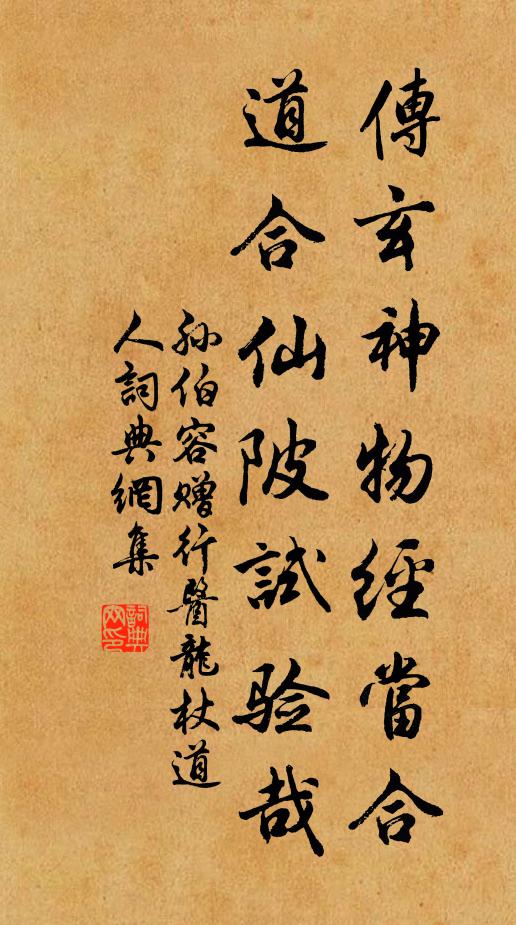 傳玄神物經當合
道合仙陂試验哉
孙伯容赠行醫龍杖道
人詞典網集
詞典
网印